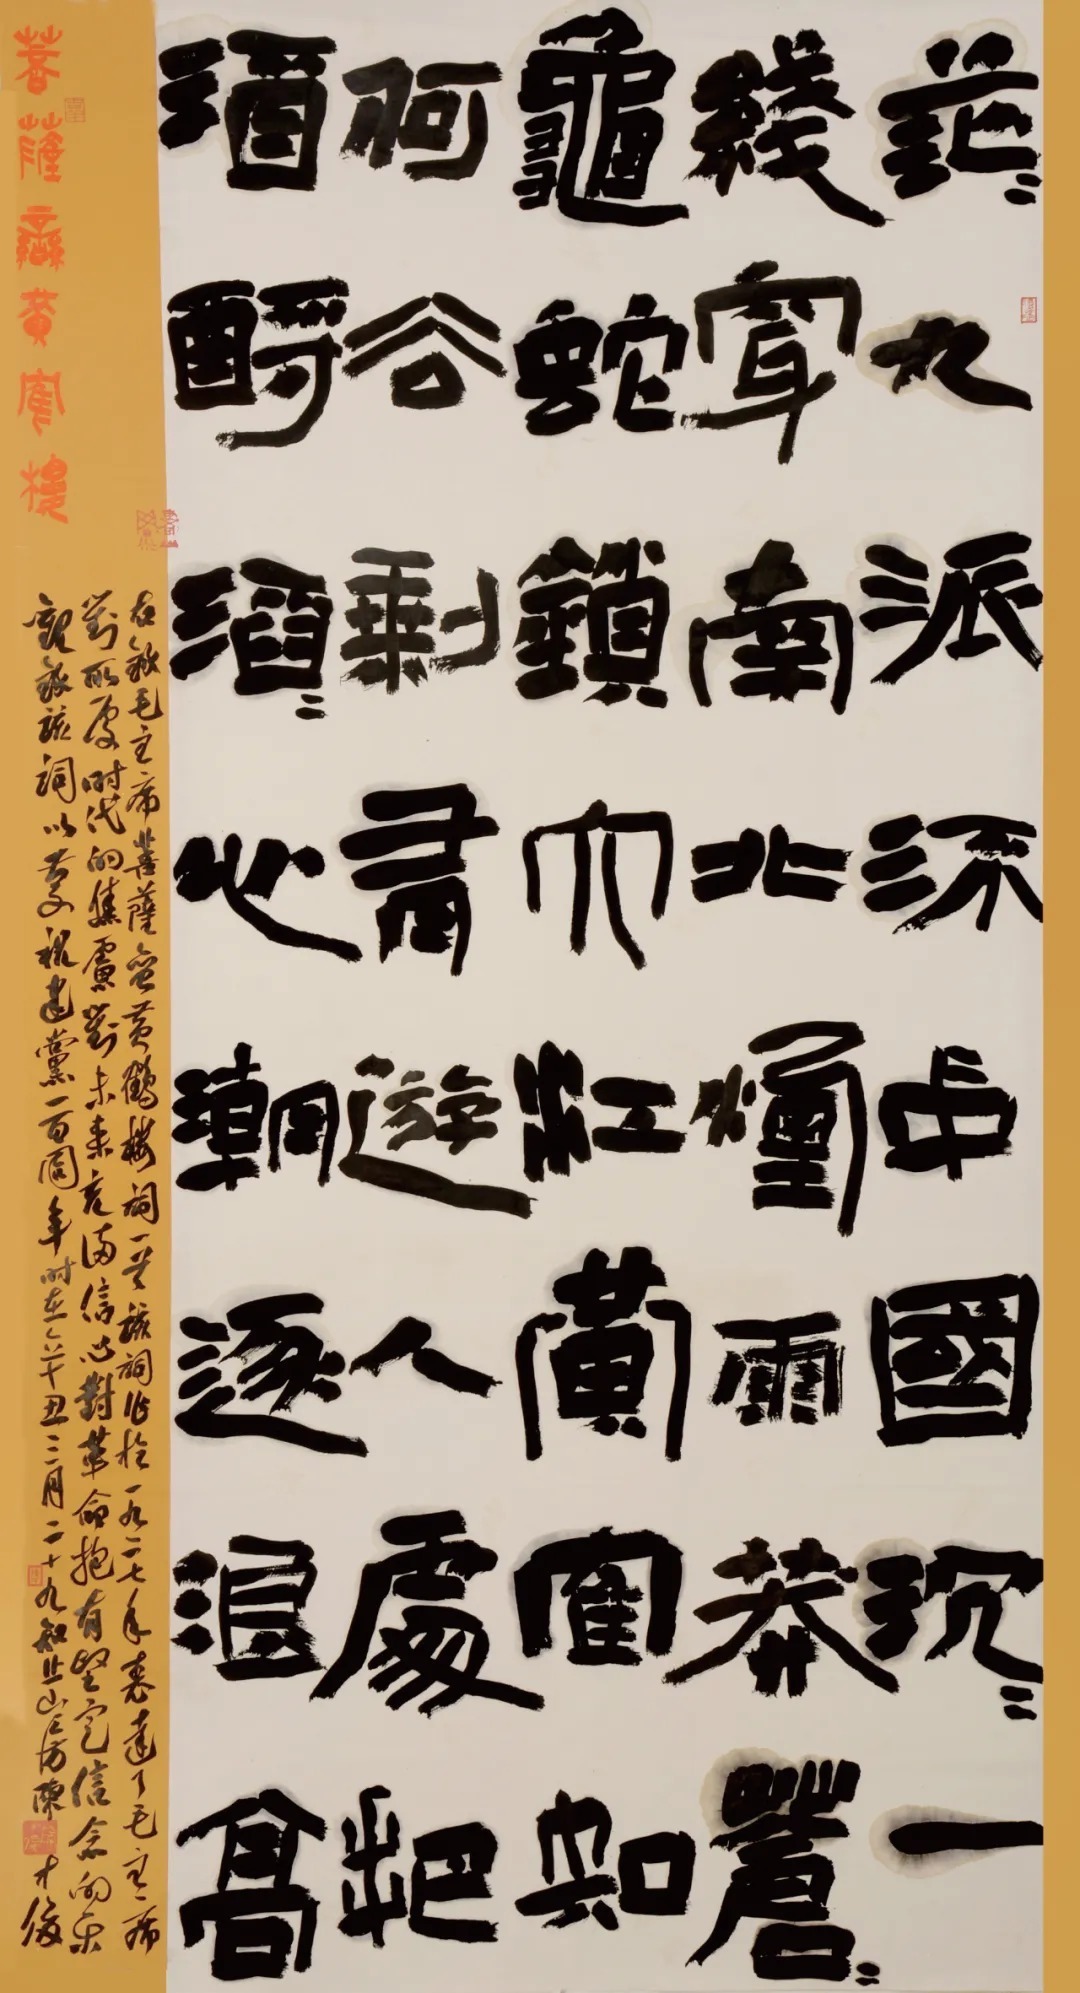 茫〻九派流中國沉〻一
綫穿南北煙雨莽蒼〻
龜蛇鎖大江黃鶴知
何去剩有遊人處把
酒酹滔〻心潮逐浪高
菩薩蠻黃鶴樓
右錄毛主席菩薩蠻黃鶴樓詞一首該詞作於一九二七年表達了毛主席
對所處时代的焦慮對未來充滿信心對革命抱有堅定信念的樂
觀錄該詞以慶祝建黨一百周年时在辛丑三月二十九知止山房陳才俊